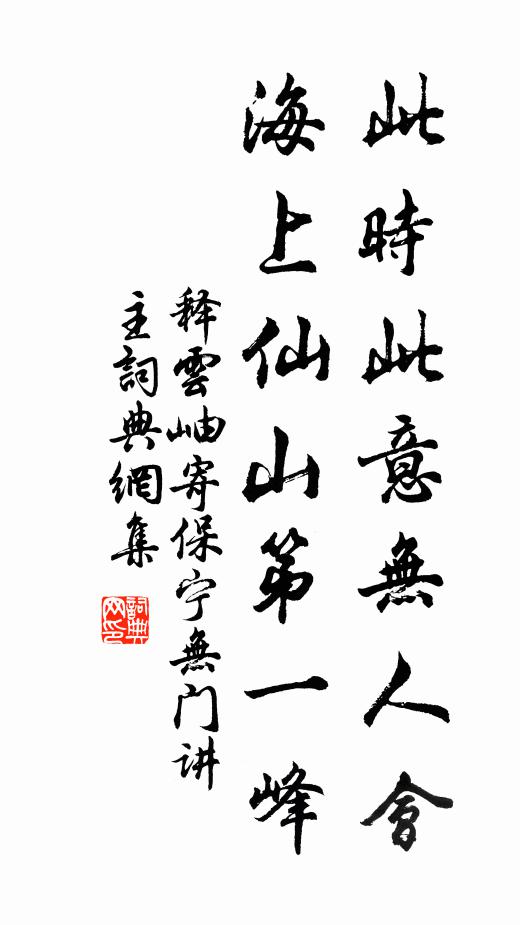 此時此意無人會
海上仙山第一峰
释雲岫寄保宁無门讲
主詞典網集
詞典网印